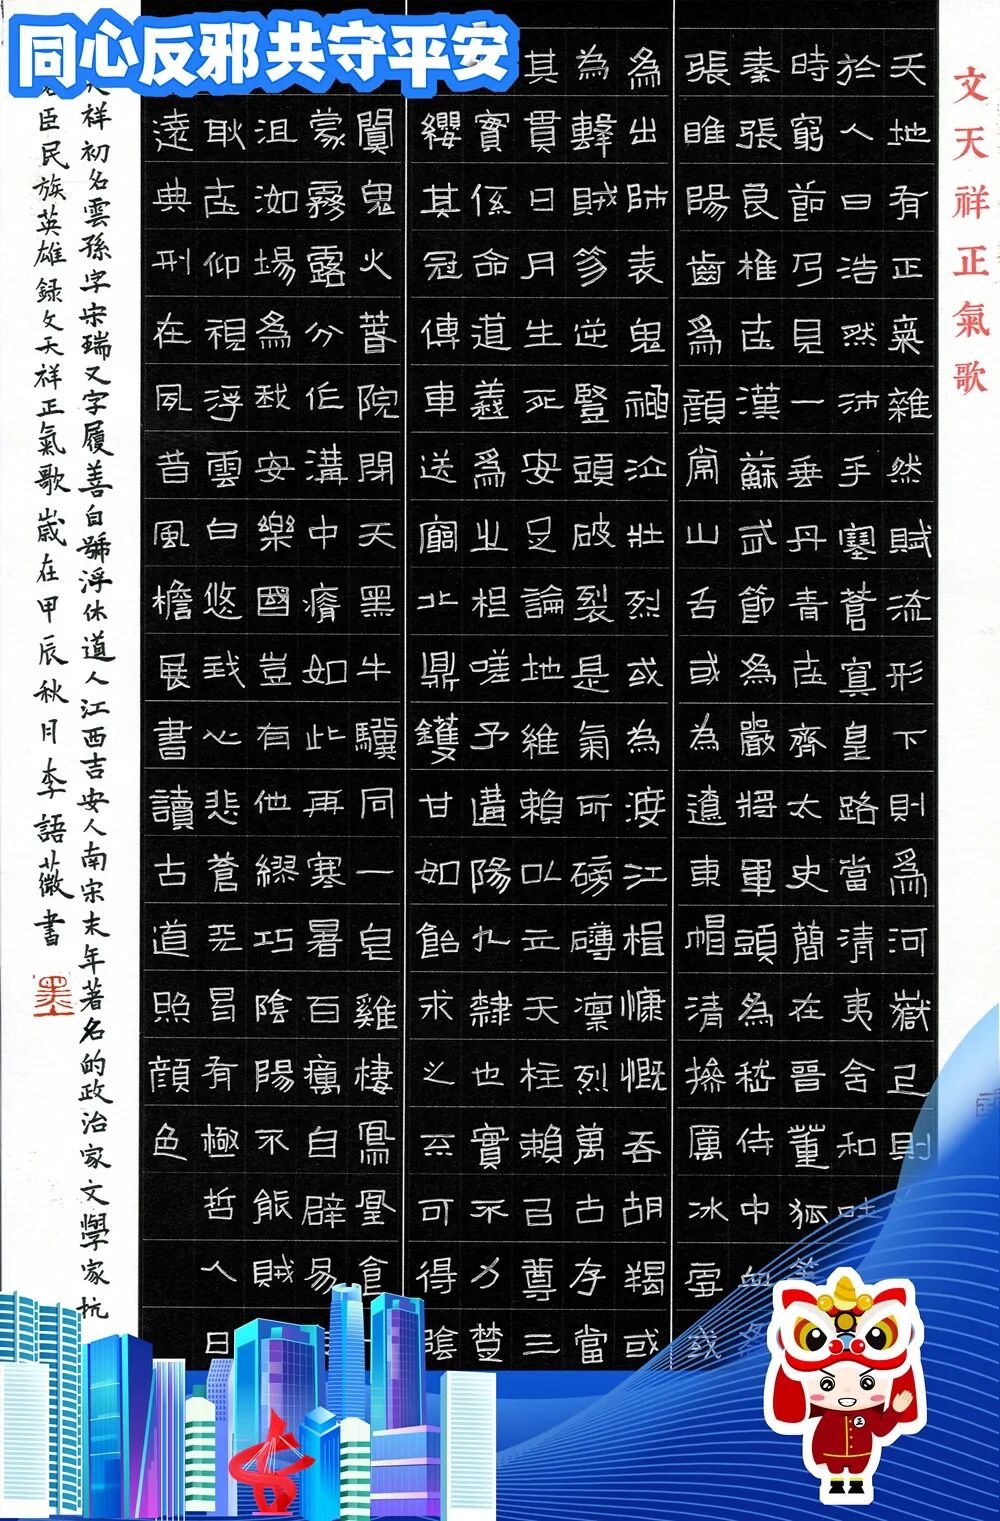 同心反邪共守平安
文天祥正氣歌
天地有正氣雜然賦流形下則為河嶽上則
於人曰浩然沛乎塞蒼冥皇路當清夷含和吐
時窮節乃見一垂丹青在齊太史簡在晉董狐筆
秦張良椎在漢蘇武節為嚴將軍頭為嵇侍中血
張睢陽齒為顏常山舌或為遼東帽清操厲冰雪或
為出師表鬼神泣壯烈或為渡江楫慷慨吞胡羯或
為擊賊笏逆豎頭破裂是氣所磅礴凜烈萬古存當
其貫日月生死安足論地維賴以立天柱賴以尊三
實係命道義為之根嗟予遘陽九隸也實不力楚
纓其冠傳車送窮北鼎鑊甘如飴求之不可得陰
闃鬼火春院閉天黑牛驥同一皂雞棲鳳凰食
蒙霧露分作溝中瘠如此再寒暑百癘自辟易
沮洳場為我安樂國豈有他繆巧陰陽不能賊
耿在仰視浮雲白悠我心悲蒼天曷有極哲人日
遠典刑在夙昔風檐展書讀古道照顏色
天祥初名雲孫字宋瑞又字履善自號浮休道人江西吉安人南宋末年著名的政治家文學家抗
臣民族英雄錄文天祥正氣歌歲在甲辰秋月李語薇書